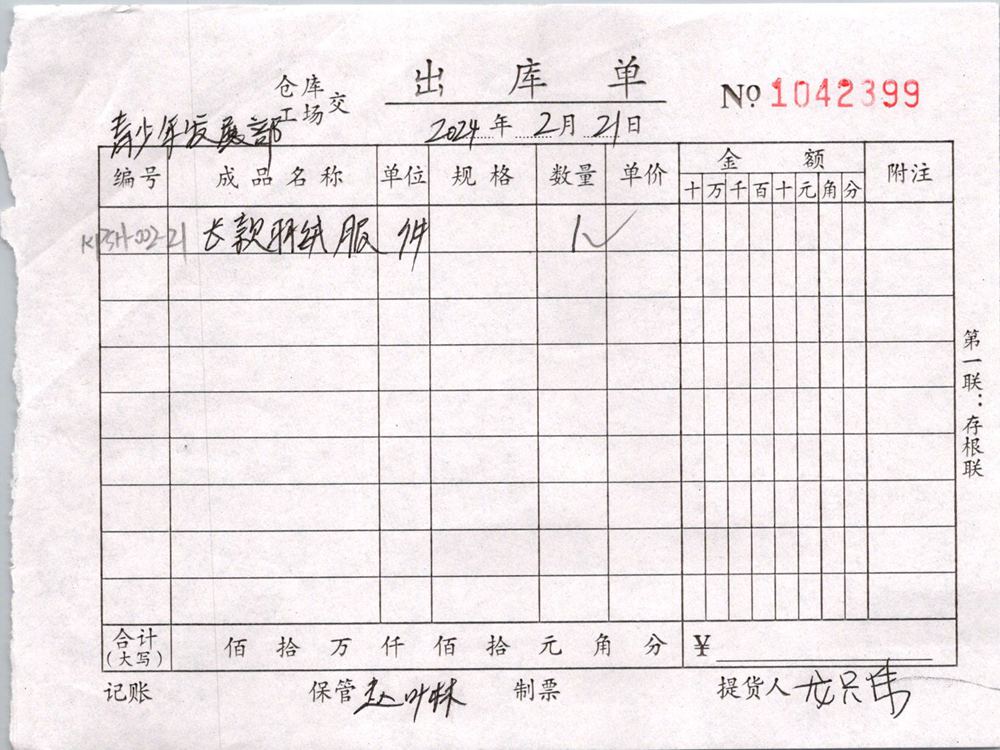 出库单
仓库
工场 交
№ 1042399
青少年发展部
2024年2月21日
编号 成品名称 单位 规格 数量 单价 金额 附注
十万千百十元角分
长款羽绒服 件 1
第一联：存根联
合计(大写) 佰拾万仟佰拾元角分 ¥
记账 保管 赵叶林 制票 提货人